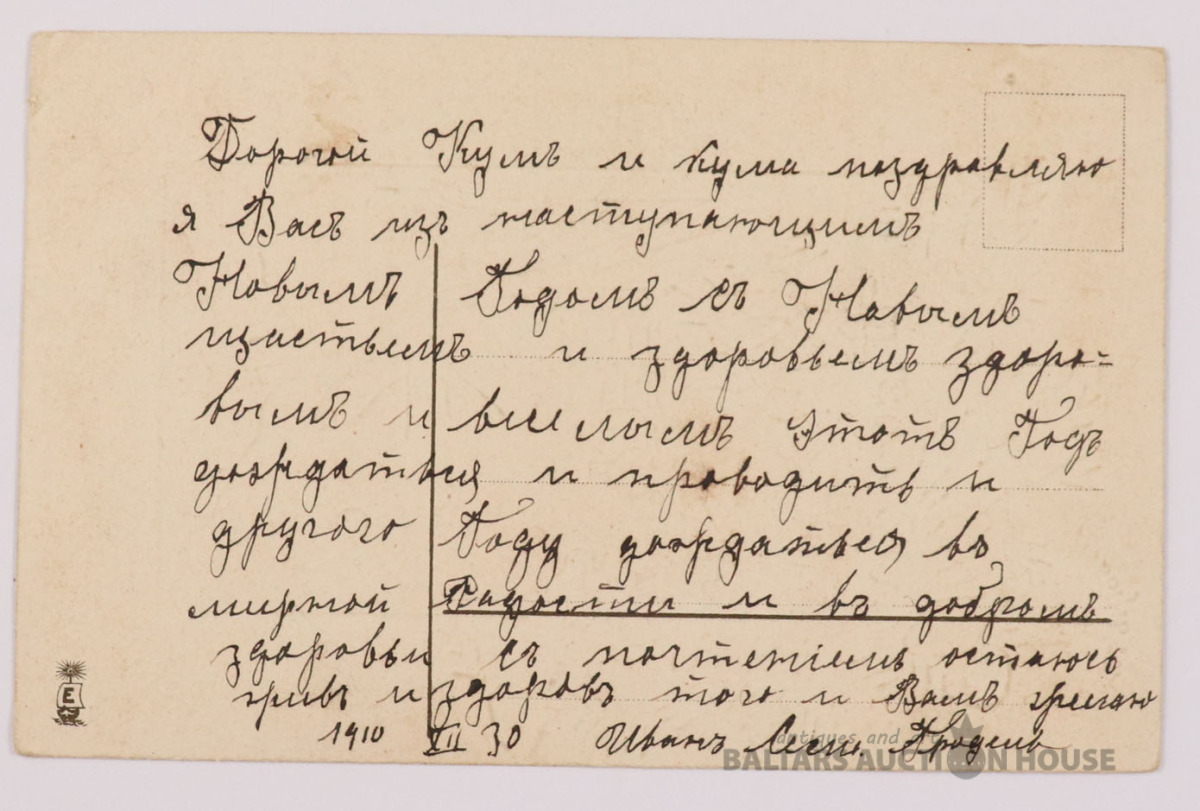 Дорогой Кумъ и кума поздровляю
я Васъ изъ наступающимъ
Новымъ Годомъ съ Новымъ
щастьемъ и здоровьемъ здоро=
вымъ и веселымъ Этотъ Годъ
дождаться и проводить и
другого Году дождаться въ
мирной Радости и въ добромъ
здоровьи съ почтеніемъ остаюсь
живъ и здоровъ того и Вамъ желаю
1910 XII 30 Иванъ
E
antiques and
BALTARS AUCTION HOUSE